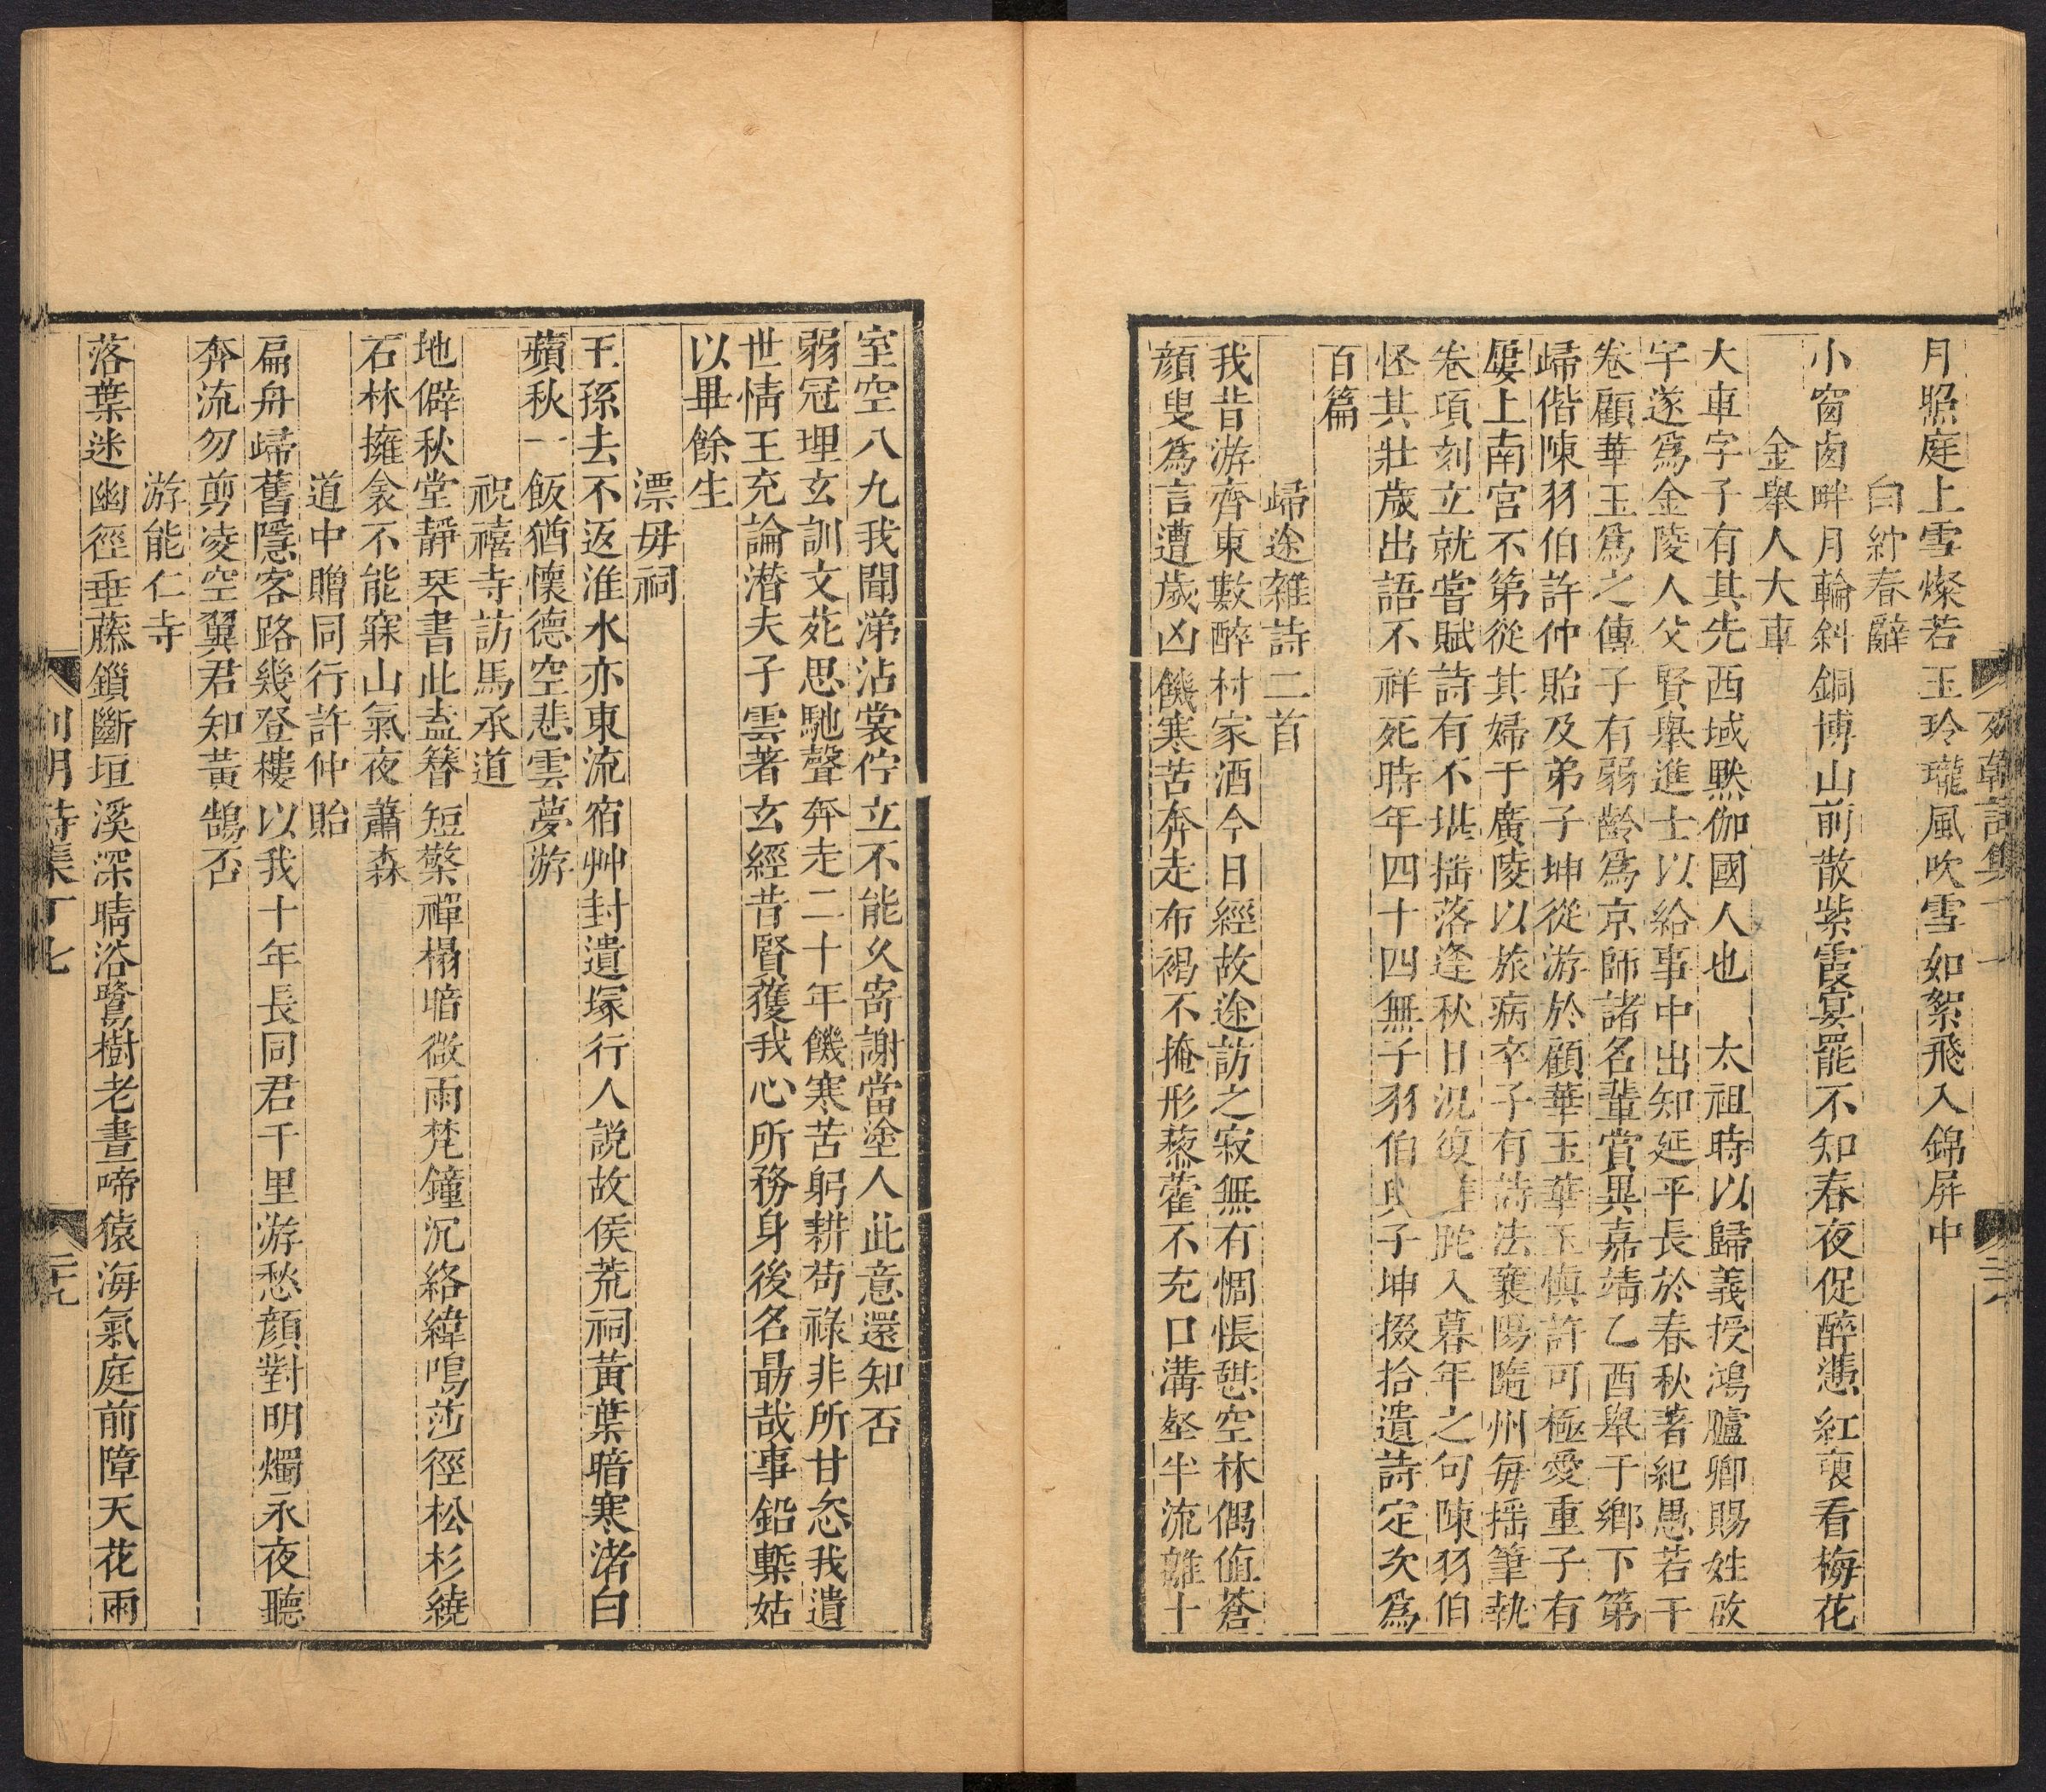 月照庭上雪燦若玉玲瓏風吹雪如絮飛入錦屏中
白紵春辭
小窗囱畔月輪斜銅博山前散紫霞宴罷不知春夜促醉憑紅褏看梅花
金舉人大車
大車字子有其先西域默伽國人也　太祖時以歸義授鴻臚卿賜姓改
字遂爲金陵人父賢舉進士以給事中出知延平長於春秋著紀愚若干
卷顧華玉爲之傳子有弱齡爲京師諸名輩賞異嘉靖乙酉舉于鄉下第
歸偕陳羽伯許仲貽及弟子坤從游於顧華玉華玉愼許可極愛重子有
屢上南宮不第從其婦于廣陵以旅病卒子有詩法襄陽隨州每揺筆執
卷項刻立就嘗賦詩有不堪揺落逢秋日況復蹉跎入暮年之句陳羽伯
怪其壯歲出語不祥死時年四十四無子羽伯與子坤掇拾遺詩定次爲
百篇
歸途雜詩二首
我昔游齊東數醉村家酒今日經故途訪之寂無有惆悵憩空林偶值蒼
顏叟爲言遭歲凶饑寒苦奔走布褐不掩形藜藿不充口溝壑半流離十
室空八九我聞涕沾裳佇立不能久寄謝當塗人此意還知否
弱冠理玄訓文苑思馳聲奔走二十年饑寒苦躬耕苟祿非所甘忽我遺
世情王充論潛夫子雲著玄經昔賢獲我心所務身後名勗哉事鉛槧姑
以畢餘生
漂毋祠
王孫去不返淮水亦東流宿艸封遺塚行人説故侯荒祠黃葉暗寒渚白
蘋秋一飯猶懷德空悲雲夢游
祝禧寺訪馬承道
地僻秋堂靜琴書此盍簪短檠禪榻暗微雨梵鐘沉絡緯鳴莎徑松杉繞
石林擁衾不能寐山氣夜蕭森
道中贈同行許仲貽
扁舟歸舊隱客路幾登樓以我十年長同君千里游愁顏對明燭永夜聽
奔流勿剪凌空翼君知黃鵠否
游能仁寺
落葉迷幽徑垂藤鎖斷垣溪深晴浴鷺樹老晝啼猿海氣庭前障天花雨
列朝詩集丁七
二十九